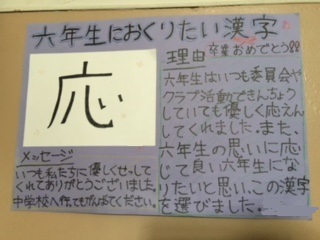 六年生におくりたい漢字
応
メッセージ
いつも私たちに優しくせっして
くれてありがとうございました。
中学校へ行ってもがんばてください。
理由 卒業おめでとう!!
六年生はいつも委員会や
クラブ活動できんちょう
していても優しく応えん
してくれました。また、
六年生の思いに応
じて良い六年生にな
りたいと思い、この漢字
を選びました。